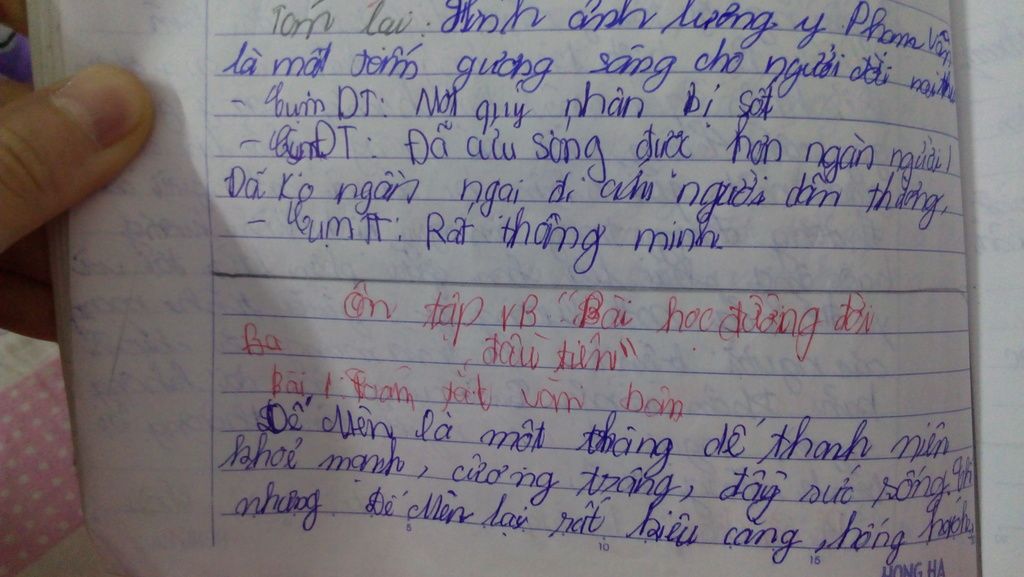 Tóm lại: Hình ảnh lương y Phạm Văn
là một tấm gương sáng cho người đời
- Cụm DT: Một quý nhân bị sốt
- Cụm ĐT: Đã cứu sống được hơn ngàn người
Đã ko ngần ngại đi cứu người dân thường.
- Cụm TT: Rất thông minh
Ôn tập VB "Bài học đường đời
đầu tiên"
Bài 1: Tóm tắt văn bản
Dế Mèn là một thằng dế thanh niên
khoẻ mạnh, cường tráng, đầy sức sống.
nhưng Dế Mèn lại rất kiêu căng, hống hách
5 10 15
HONG HA